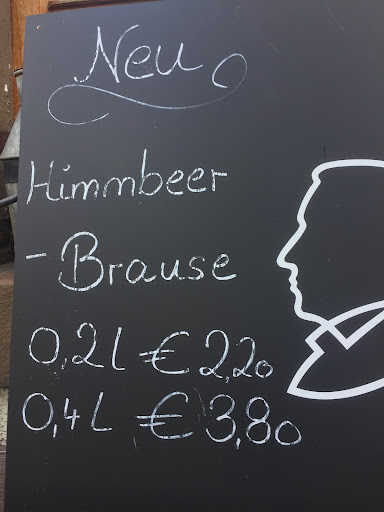 Neu
Himmbeer
- Brause
0,2l € 2,20
0,4L € 3,80